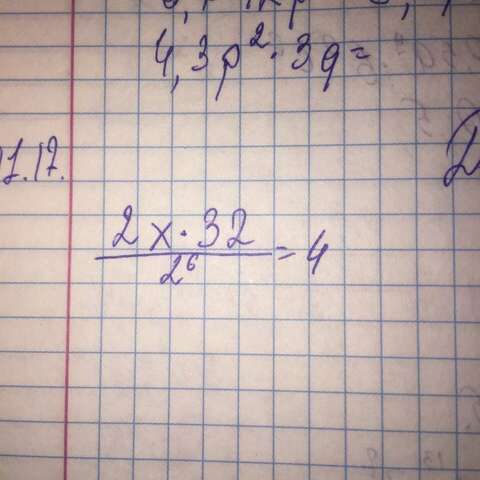 4,3p²·3q=
2x·32
2⁶
=4